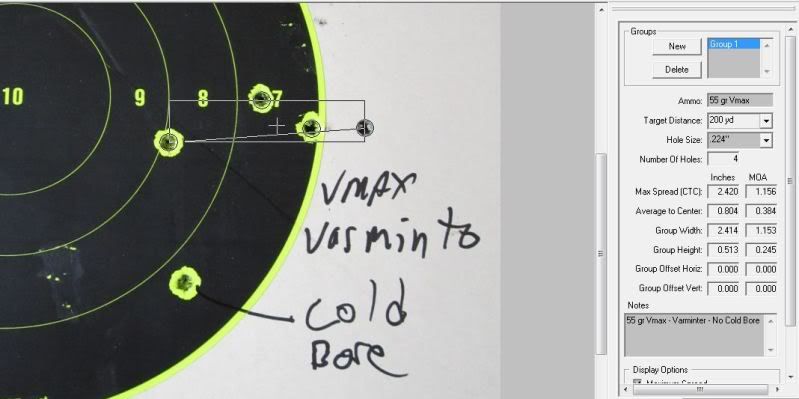 10
9
8
7
VMAX
Varminto
Cold
Bore
Groups
New
Group 1
Delete
Ammo: 55 gr Vmax
Target Distance: 200 yd
Hole Size: .224"
Number Of Holes: 4
Inches MOA
Max Spread (CTC): 2.420 1.156
Average to Center: 0.804 0.384
Group Width: 2.414 1.153
Group Height: 0.513 0.245
Group Offset Horiz: 0.000 0.000
Group Offset Vert: 0.000 0.000
Notes
55 gr Vmax - Varminter - No Cold Bore
Display Options
Maximum Spread